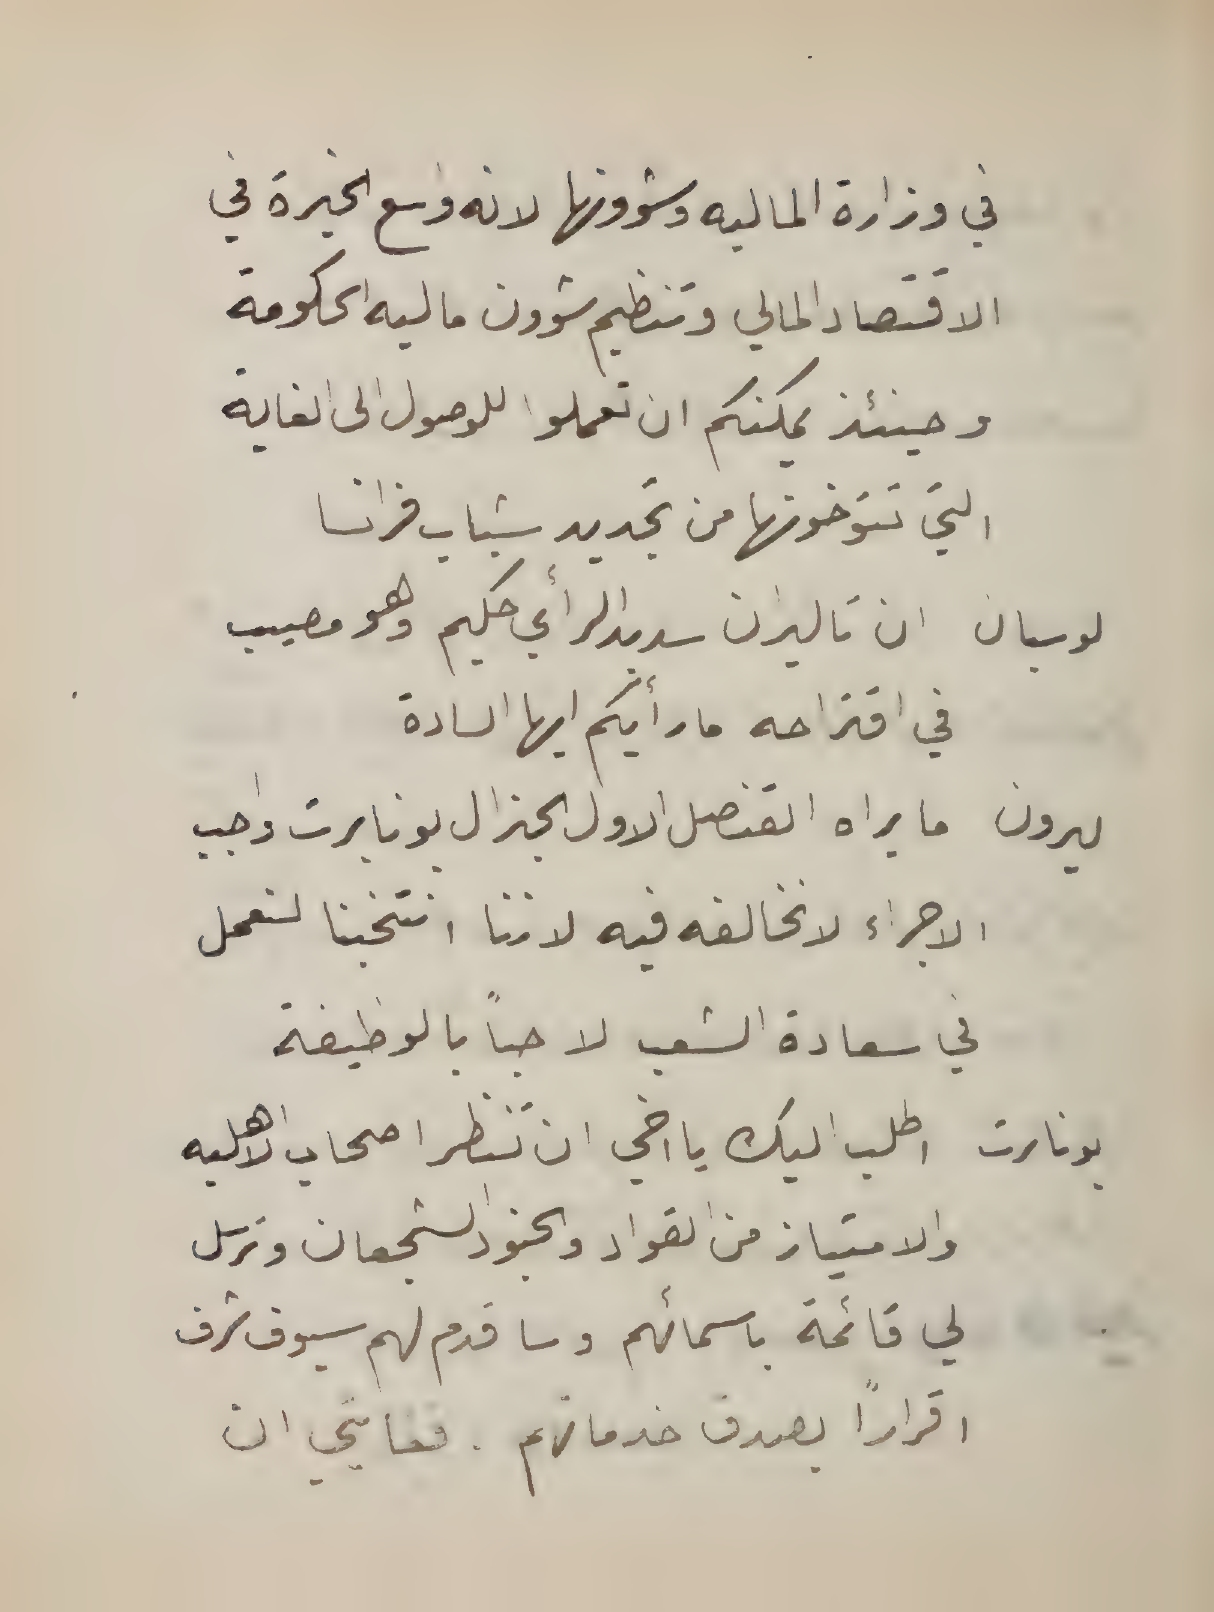 في وزارة الماليه وشؤونها لانه واسع الخبرة في
الاقتصاد المالي وتنظيم شوون ماليه الحكومة
وحينئذ يمكنكم ان تعملوا للوصول الى الغاية
التي تتوخونها من تجديد شباب فرانسا
لوسيان ان تاليران سديد الرأي حكيم وهو مصيب
في اقتراحه ما رأيكم ايها السادة
ليرون ما يراه القنصل الاول الجنرال بونابرت واجب
الاجراء لا نخالفه فيه لاننا انتخبنا لنعمل
في سعادة الشعب لا حباً بالوظيفة
بونابرت اطلب اليك يا اخي ان تنظر اصحاب الاهليه
والامتياز من القواد والجنود الشجعان وترسل
لي قائمة باسمائهم وساقدم لهم سيوف شرف
اقراراً بصدق خدماتهم . فغايتي ان